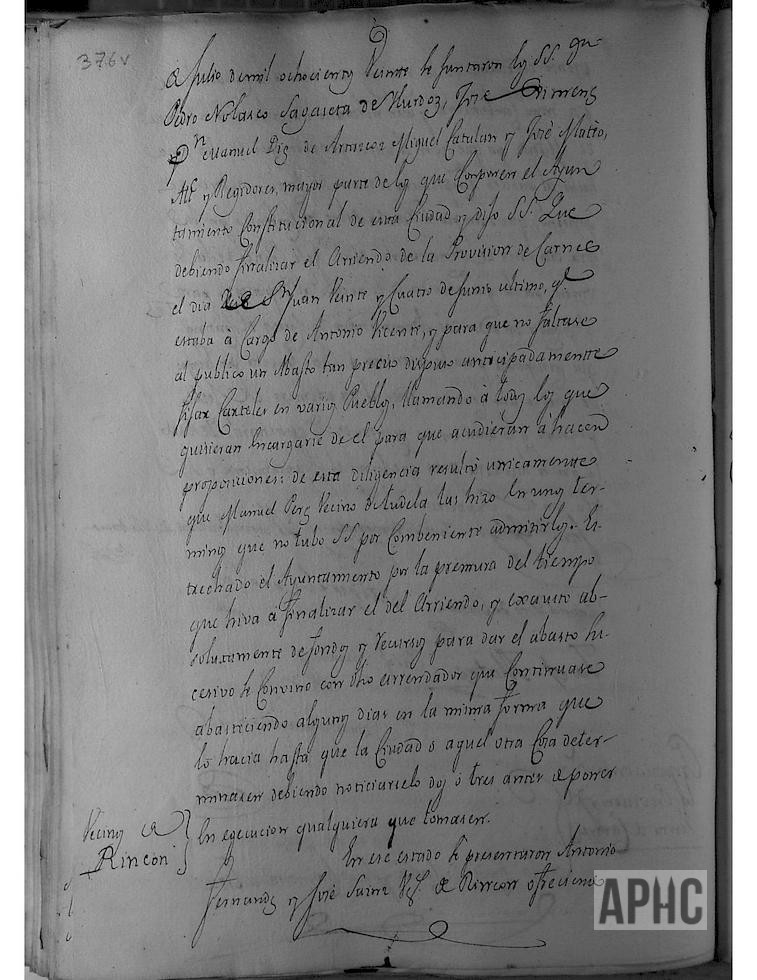 376v
de Julio de mil ochocientos Veinte se Juntaron los SS. Dn
Pedro Nolasco Sagaseta de Yturdoz, Jose Ximenez
Dn Manuel Diz de Artazcoz Miguel Catalan y José Matèo,
Alc. y Regidores, mayor parte de los que Componen el Ayun
tamiento Constitucional de esta Ciudad y dijo SS. Que
debiendo finalizar el Arriendo de la Provision de Carnes
el dia de Sn Juan Veinte y Cuatro de Junio ultimo, qe
estaba à Cargo de Antonio Vicente, y para que no faltase
al publico un Abasto tan preciso dispuso anticipadamente
fijar Carteles en varios Pueblos, llamando à todos los que
quisieran Encargarse de el para que acudieran à hacer
proposiciones: de esta diligencia resultò unicamente
que Manuel Perez Vecino de Tudela las hizo en unos ter-
minos que no tubo SS por Combeniente admitirlos. Es-
trechado el Ayuntamiento por la premura del tiempo
que hiva à finalizar el del Arriendo, y exausto ab-
solutamente de fondos y recursos para dar el abasto su-
cesivo se Convino con dho arrendador que Continuase
abasteciendo algunos dias en la misma forma que
lo hacia hasta que la Ciudad o aquel otra Cosa deter-
minasen debiendo noticiarselo dos ò tres antes de poner
en egecucion qualquiera que tomasen.
Vecinos de
Rincon
En ese estado se presentaron Antonio
Fernandez y José Sainz Vs. de Rincon ofreciend
APHC